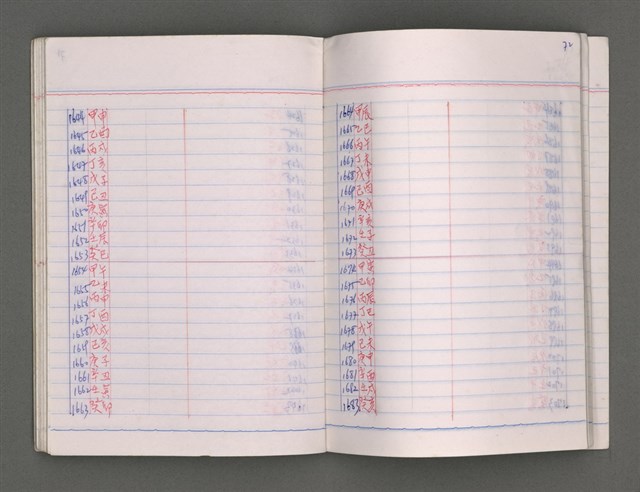 1644 甲申
1645 乙酉
1646 丙戌
1647 丁亥
1648 戊子
1649 己丑
1650 庚寅
1651 辛卯
1652 壬辰
1653 癸巳
1654 甲午
1655 乙未
1656 丙申
1657 丁酉
1658 戊戌
1659 己亥
1660 庚子
1661 辛丑
1662 壬寅
1663 癸卯
72
1664 甲辰
1665 乙巳
1666 丙午
1667 丁未
1668 戊申
1669 己酉
1670 庚戌
1671 辛亥
1672 壬子
1673 癸丑
1674 甲寅
1675 乙卯
1676 丙辰
1677 丁巳
1678 戊午
1679 己未
1680 庚申
1681 辛酉
1682 壬戌
1683 癸亥